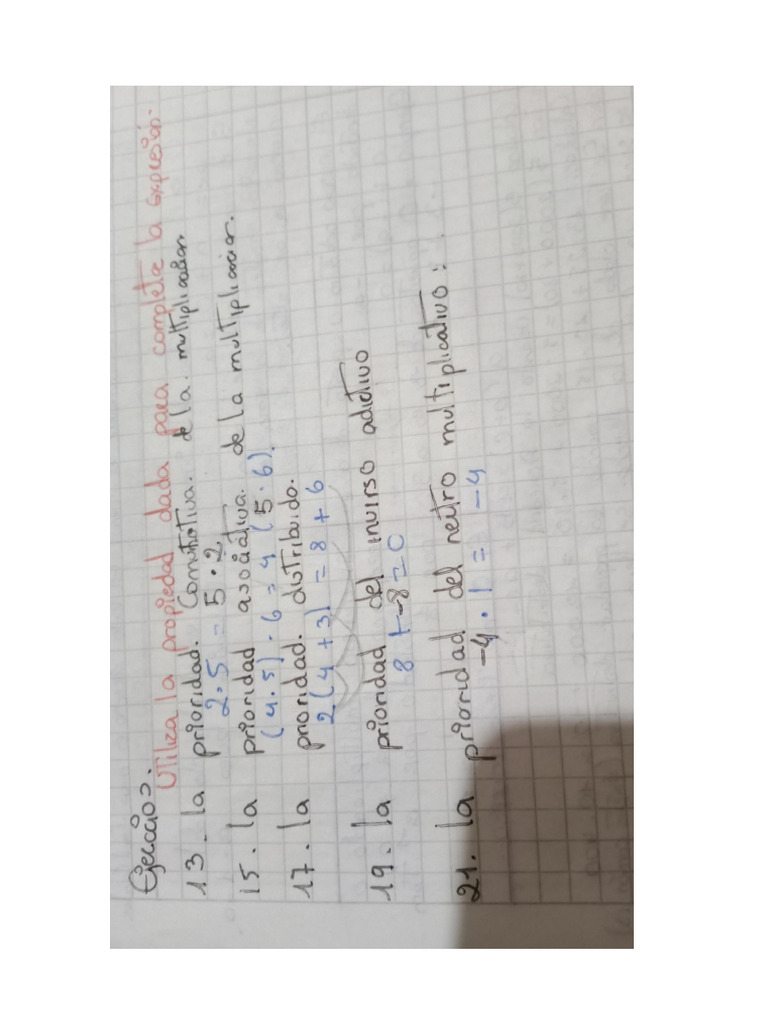 Ejercicios.
Utiliza la propiedad dada para completa la expresión.
13. la prioridad. Conmutativa. de la. multiplicación.
2.5 = 5.2
15. la prioridad asociativa. de la multiplicacion.
(4.5).6 = 4 (5.6).
17. la prioridad. distribuido.
2(4+3) = 8+6
19. la prioridad del invirso adictivo
8+-8=0
21. la prioridad del neutro multiplicativo:
-4.1 = -4